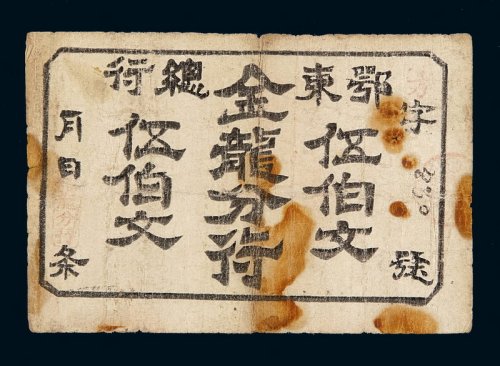 字號
鄂東總行
伍伯文
金龍分行
伍伯文
月日条